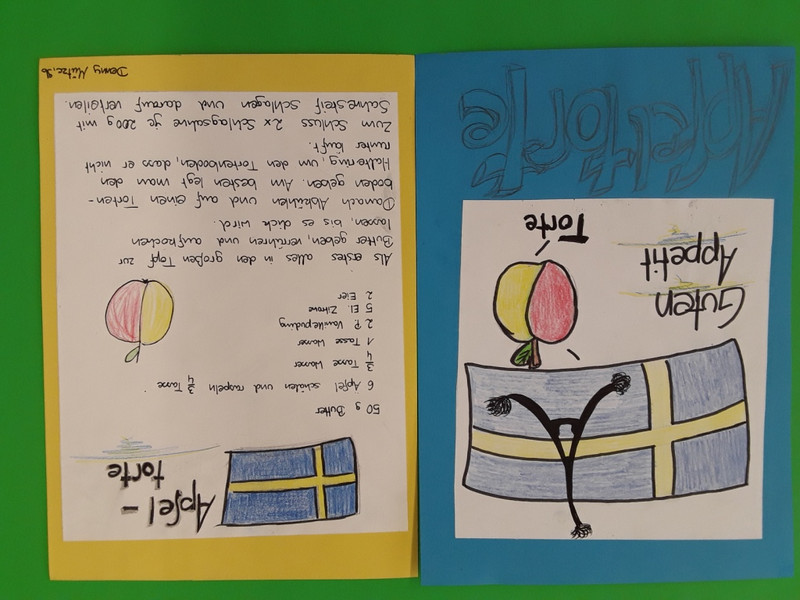 Guten
Appetit
Torte
Apfeltorte
Apfel-
torte
50 g Butter
6 Äpfel schälen und raspeln 3/4 Tasse
3/4 Tasse Wasser
1 Tasse Wasser
2 P. Vanillepudding
5 El. Zitrone
2 Eier
Als erstes alles in den großen Topf zur
Butter geben, verrühren und aufkochen
lassen, bis es dick wird.
Danach Abkühlen und auf einen Torten-
boden geben. Am besten legt man den
Haltering, um den Tortenboden, dass er nicht
runter läuft.
Zum Schluss 2x Schlagsahne je 200g mit
Sahnesteif schlagen und darauf verteilen.
Denny Mütze,